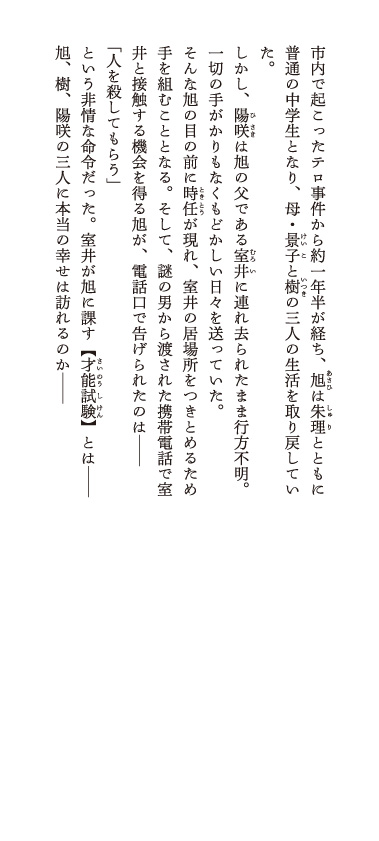 市内で起こったテロ事件から約一年半が経ち、旭は朱理とともに
普通の中学生となり、母・景子と樹の三人の生活を取り戻してい
た。
しかし、陽咲は旭の父である室井に連れ去られたまま行方不明。
一切の手がかりもなくもどかしい日々を送っていた。
そんな旭の目の前に時任が現れ、室井の居場所をつきとめるため
手を組むこととなる。そして、謎の男から渡された携帯電話で室
井と接触する機会を得る旭が、電話口で告げられたのは――
「人を殺してもらう」
という非情な命令だった。室井が旭に課す【才能試験】とは――
旭、樹、陽咲の三人に本当の幸せは訪れるのか――